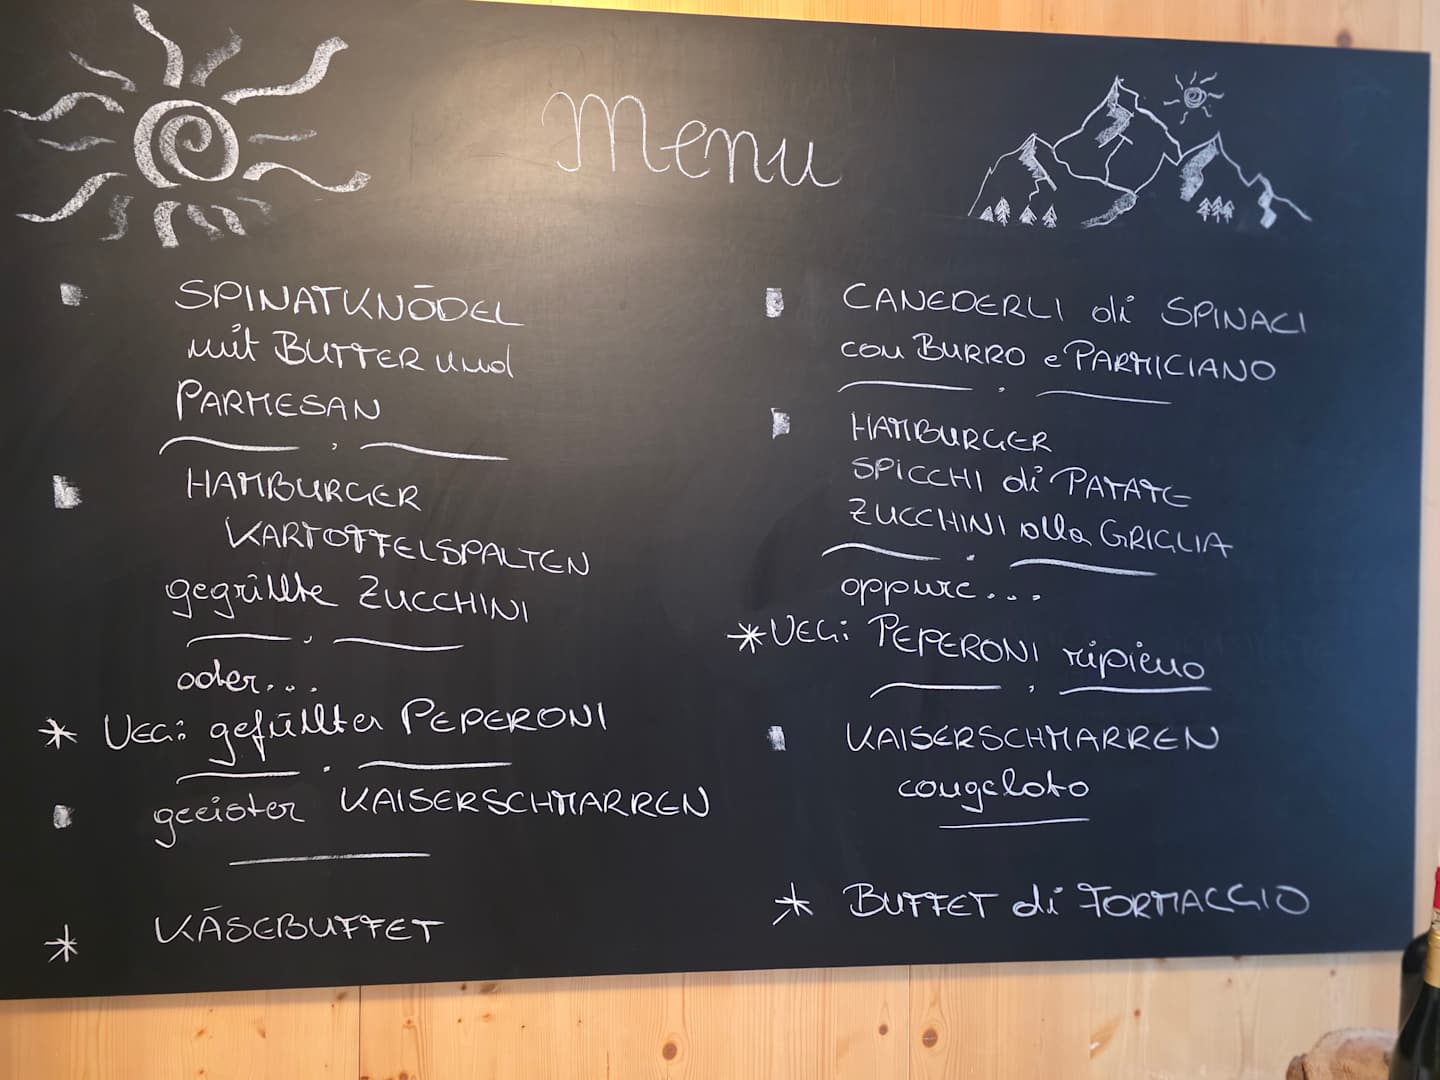 Menu
SPINATKNÖDEL
mit BUTTER und
PARMESAN
HAMBURGER
KARTOFFELSPALTEN
gegrillte ZUCCHINI
oder...
* VEG: gefüllter PEPERONI
geeister KAISERSCHMARREN
* KÄSEBUFFET
CANEDERLI di SPINACI
con BURRO e PARMIGIANO
HAMBURGER
SPICCHI di PATATE
ZUCCHINI alla GRIGLIA
oppure...
* VEG: PEPERONI ripieno
KAISERSCHMARREN
congelato
* BUFFET di FORMAGGIO